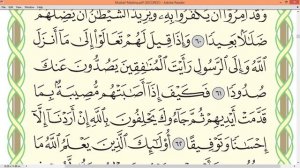 Mushaf Madina.pdf (SECURED) - Adobe Reader
وَقَدْ أُمِرُوٓا۟ أَن يَكْفُرُوا۟ بِهِۦ وَيُرِيدُ ٱلشَّيْطَٰنُ أَن يُضِلَّهُمْ
ضَلَٰلًۢا بَعِيدًا ٦٠ وَإِذَا قِيلَ لَهُمْ تَعَالَوْا۟ إِلَىٰ مَآ أَنزَلَ
ٱللَّهُ وَإِلَى ٱلرَّسُولِ رَأَيْتَ ٱلْمُنَٰفِقِينَ يَصُدُّونَ عَنكَ
صُدُودًا ٦١ فَكَيْفَ إِذَآ أَصَٰبَتْهُم مُّصِيبَةٌۢ بِمَا
قَدَّمَتْ أَيْدِيهِمْ ثُمَّ جَآءُوكَ يَحْلِفُونَ بِٱللَّهِ إِنْ أَرَدْنَآ إِلَّآ
إِحْسَٰنًا وَتَوْفِيقًا ٦٢ أُو۟لَٰٓئِكَ ٱلَّذِينَ يَعْلَمُ ٱللَّهُ مَا